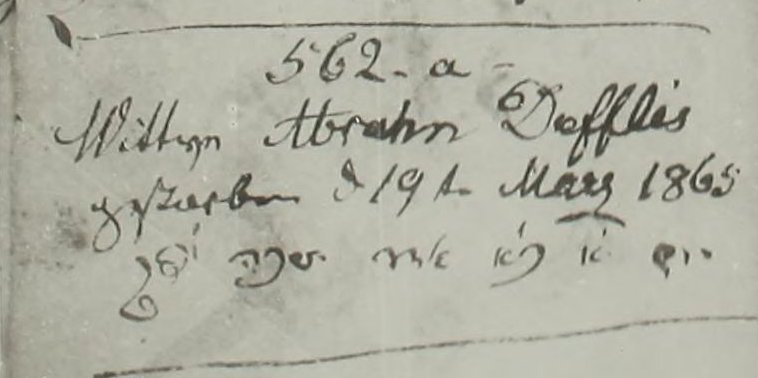 562. a -
Wittwe Abrahm Defflis
gestorben d 19 t. März 1865
יום א' כ'א אדר